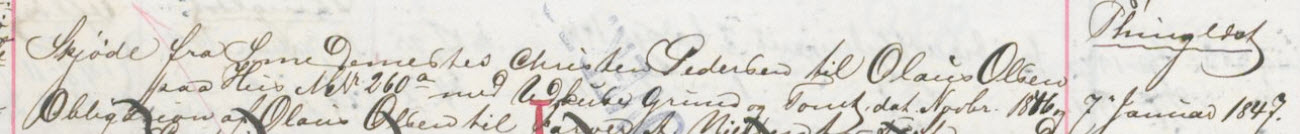 Thinglæst
Skjøde fra Smedemester Christen Pedersen til Olaus Olsen
paa Huus Mtr. Nr. 260a med Udhuse Grund og Tomt, dat. Novbr. 1846. 7. Januar 1847.
Obligation af Olaus Olsen til